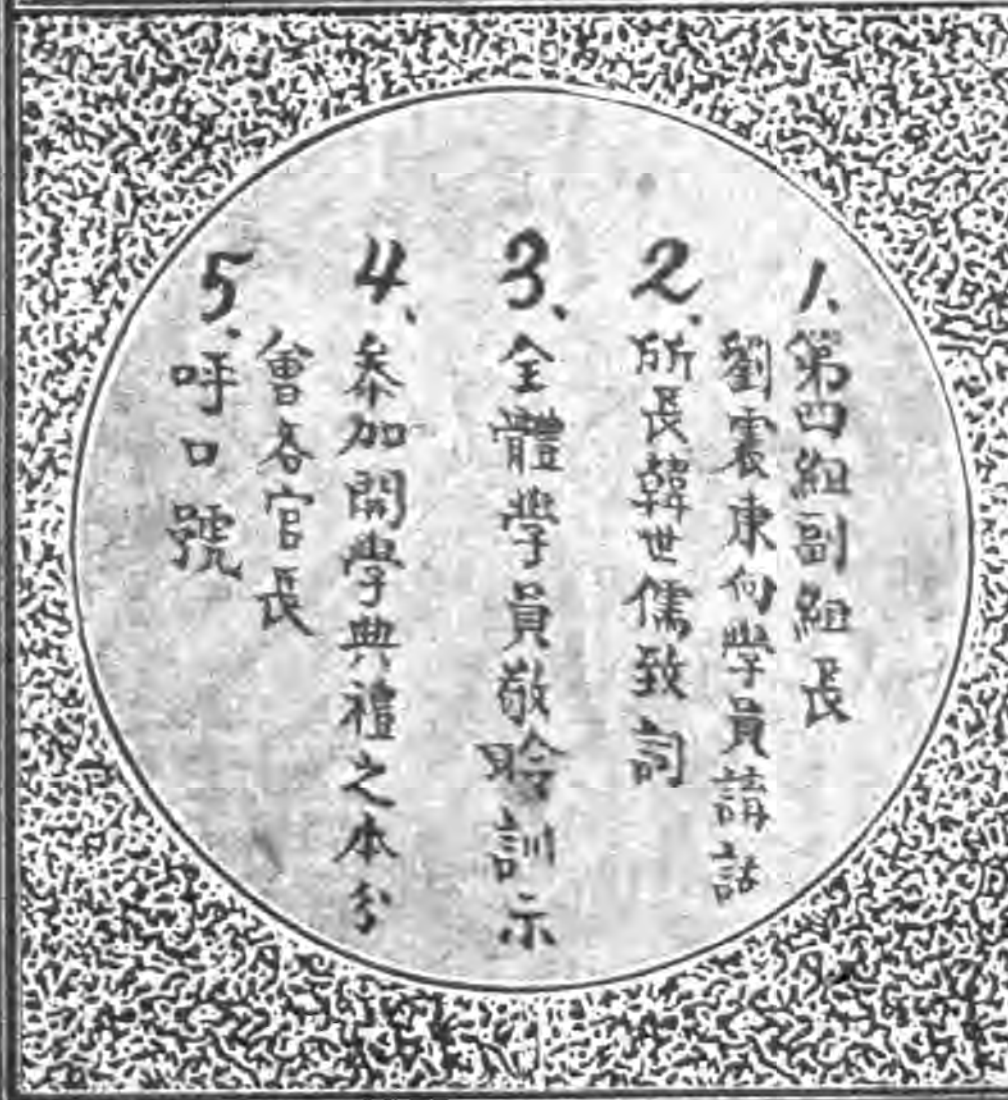 1、第四組副組長
劉震東向學員講話
2、所長韓世儒致詞
3、全體學員敬聆訓示
4、參加開學典禮之本分
會各官長
5、呼口號